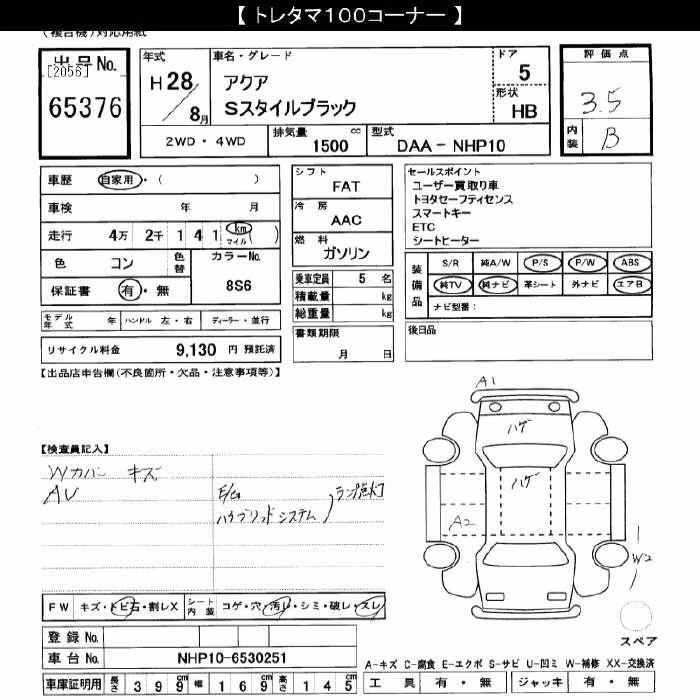 【 トレタマ100コーナー 】
(複合機)対応用紙
出品No.
[2056]
65376
年式
H 28
8月
車名・グレード
アクア
Sスタイルブラック
ドア
5
形状
HB
2WD・4WD
排気量
1500 cc
型式
DAA-NHP10
評価点
3.5
内装
B
車歴 自家用・( )
車検 年 月
走行 4万 2千 1 4 1 (km マイル)
色 コン
色替
カラーNo.
8S6
保証書 有・無
モデル年式 年 ハンドル 左・右 ディーラー・並行
リサイクル料金 9,130 円 預託済
シフト
FAT
冷房
AAC
燃料
ガソリン
乗車定員 5 名
積載量 kg
総重量 kg
書類期限
月 日
セールスポイント
ユーザー買取り車
トヨタセーフティセンス
スマートキー
ETC
シートヒーター
装備品
S/R 純A/W P/S P/W ABS
純TV 純ナビ 革シート 外ナビ エアB
ナビ型番:
後日品
【出品店申告欄(不良箇所・欠品・注意事項等)】
【検査員記入】
Wカバー キズ
AU
E/G
ハイブリッドシステム
ランプ点灯
A1
ハゲ
ハゲ
A2
W2
スペア
FW キズ・トビ石・割レX
シート内装 コゲ・穴・汚レ・シミ・破レ・スレ
登録No.
車台No. NHP10-6530251
車庫証明用 長さ 3 9 9 幅 1 6 9 高さ 1 4 5
A-キズ C-腐食 E-エクボ S-サビ U-凹ミ W-補修 XX-交換済
工具 有・無 ジャッキ 有・無